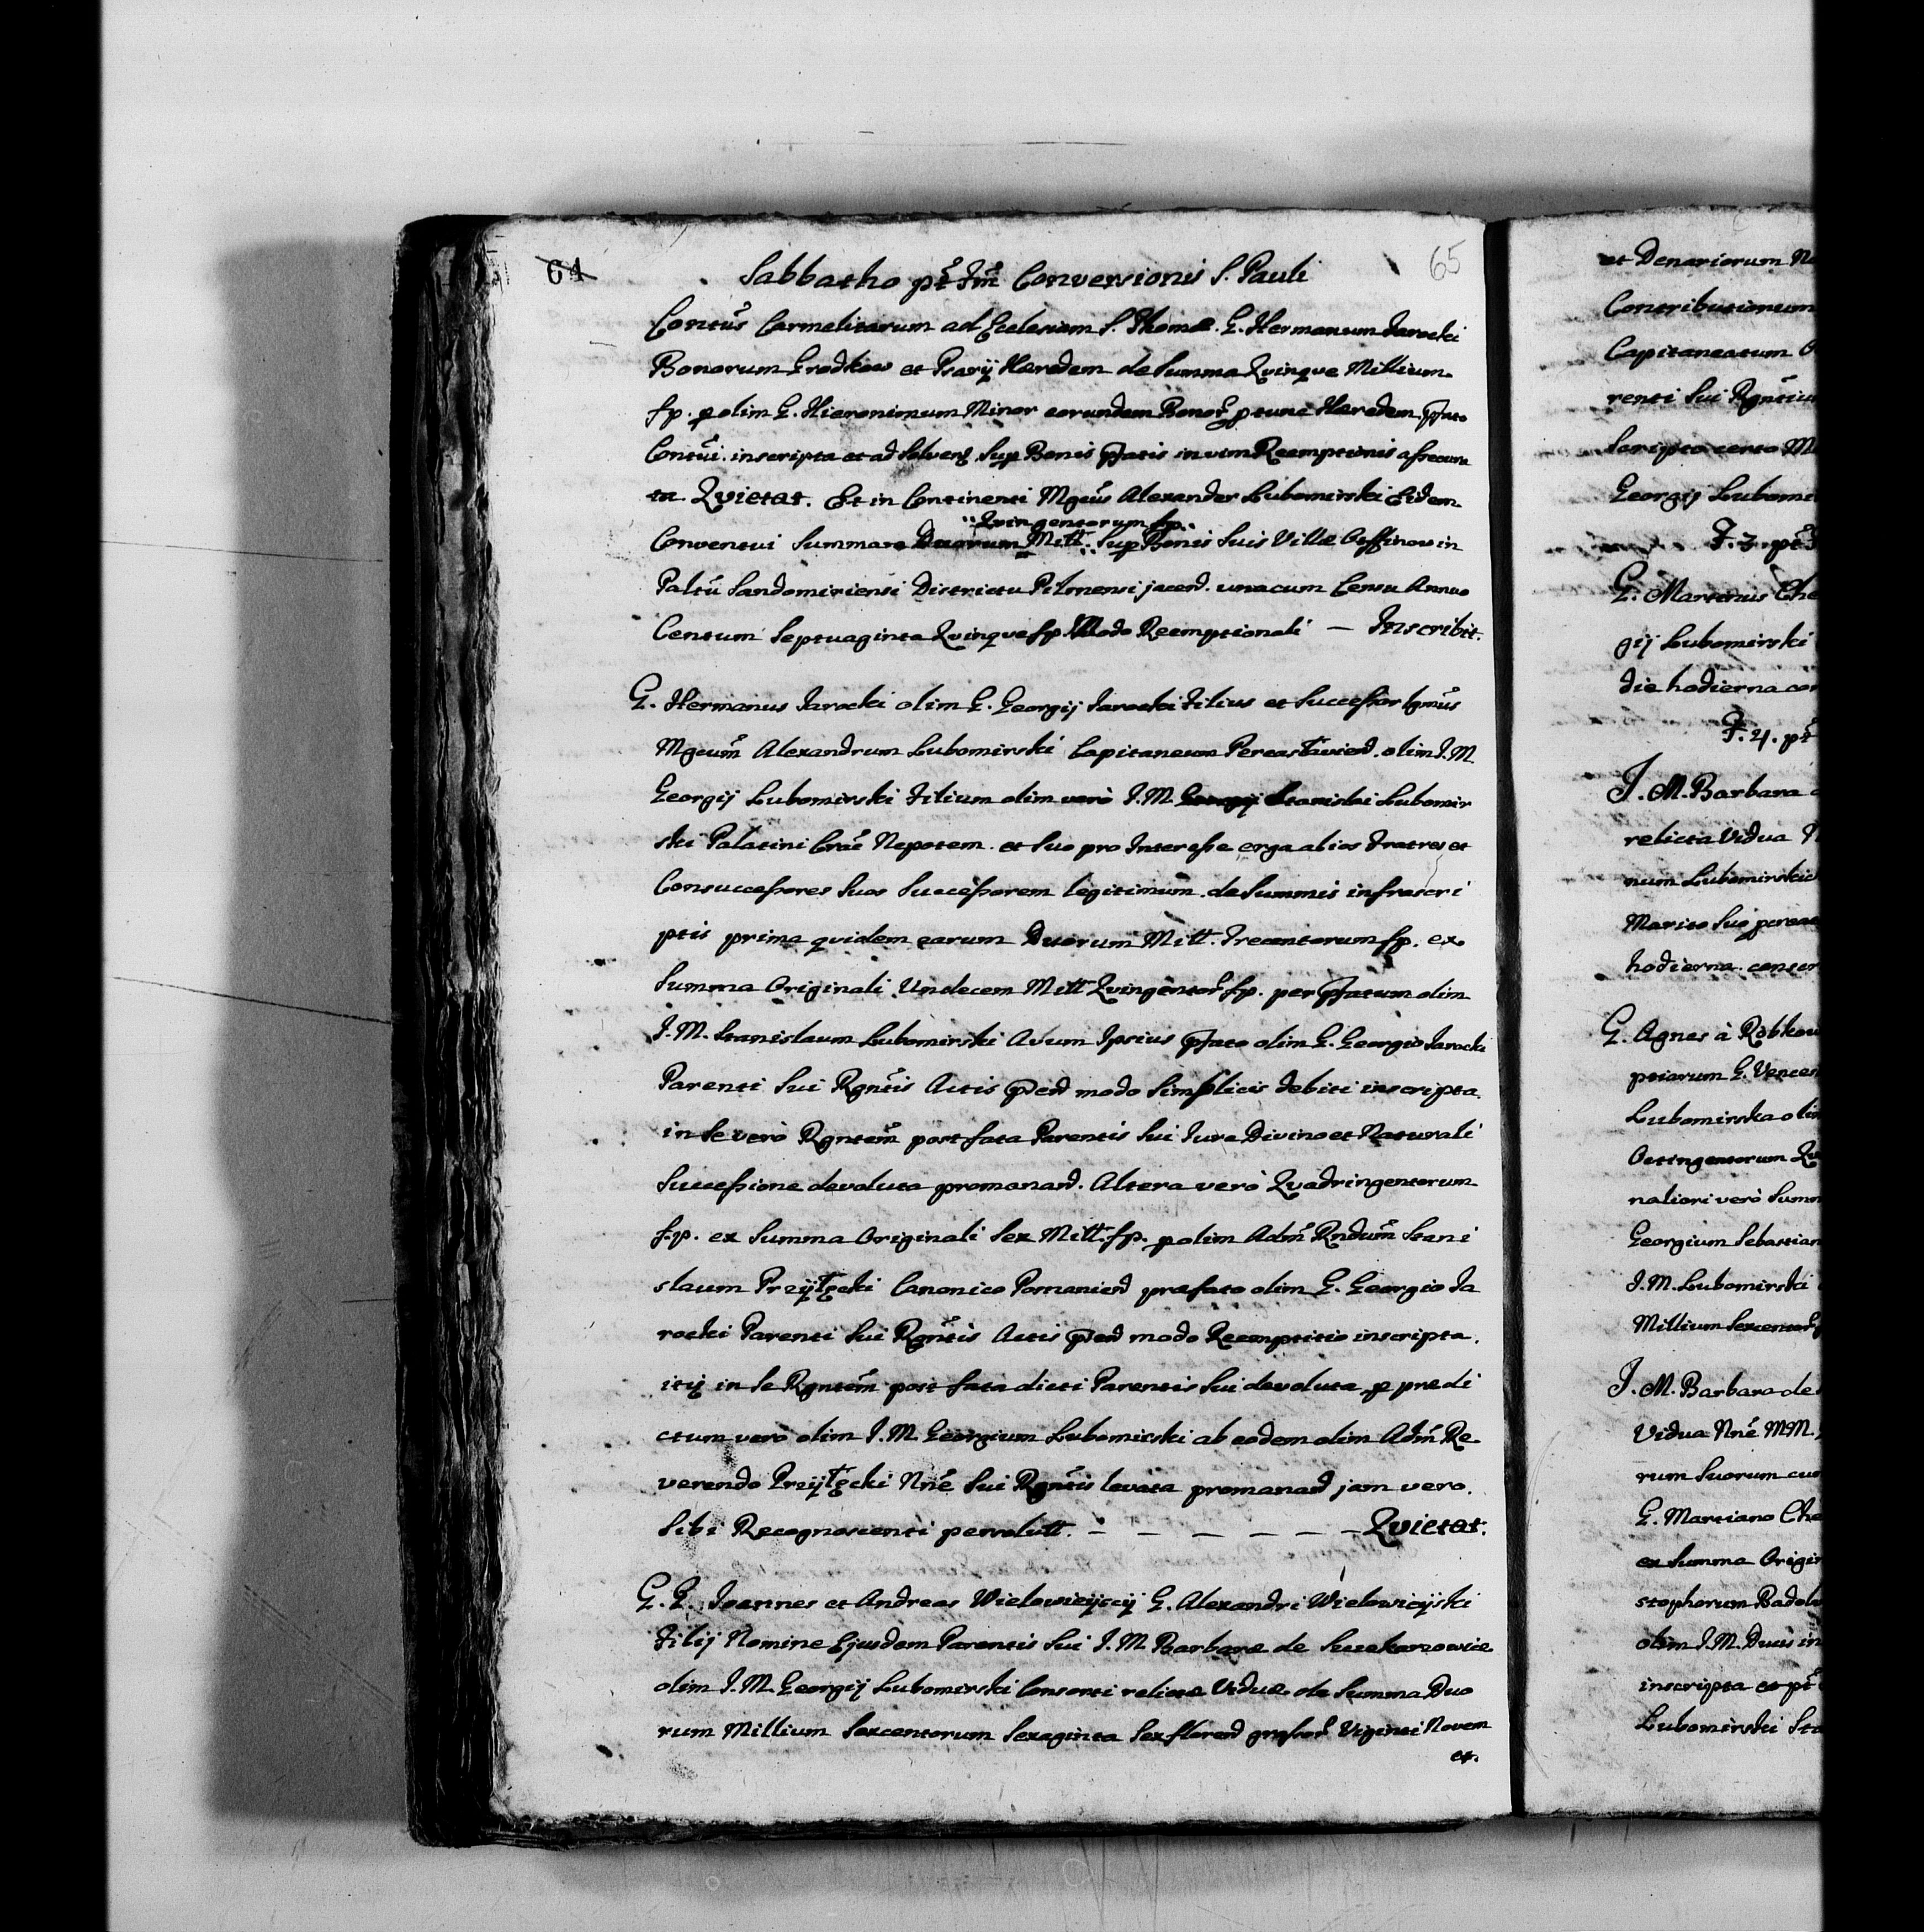 64
65
Sabbatho pt Fm Conversionis S. Pauli
Contus Carmelitarum ad Ecclesiam S. Thomæ. G. Hermanum Jarocki
Bonorum Grodkow et Psary Hæredem de Summa Qvinqve Millium.
fp. p olim G. Hieronimum Minor eorundem Bonor p tunc Hæredem pfato
Contui inscripta et ad Solven Sup Bonis pfatis in vim Reemptionis assecura
ta Qvietat. Et in Continenti Mgcus Alexander Lubomirski Eidem
Qvingentorum fp.
Conventui Summam Duorum Mill. Sup Bonis Suis Villæ in
Paltu Sandomiriensi Districtu Pilsnensi jacend. unacum Censu Annuo
Centum Septuaginta Qvinqve fp. Modo Reemptionali — Inscribit.
G. Hermanus Jarocki olim G. Georgij Jarocki Filius et Successor lgmus
Mgcum Alexandrum Lubomirski Capitaneum Pereaslavien. olim J. M.
Georgij Lubomirski Filium olim verò J. M. Stanislai Lubomir
ski Palatini Crac Nepotem et Suo pro Interesse erga alios Fratres et
Consuccessores Suos Successorem legitimum de Summis infrascri
ptis prima qvidem earum Duorum Mill. Trecentorum fp. ex
Summa Originali Undecem Mill Qvingentor fp. per pfatum olim
J. M. Stanislaum Lubomirski Avum Ipsius pfato olim G. Georgio Jarocki
Parenti Sui Rgntis Actis pnd modo Simplicis debiti inscripta.
in Se verò Rgntem post fata Parentis Sui Jure Divino et Naturali
Successione devoluta promanand. Altera verò Qvadringentorum
f.p. ex Summa Originali Sex Mill. fp. p olim Adm Rndum Stani
slaum Przyłęcki Canonico Posnanien præfato olim G. Georgio Ja
rocki Parenti Sui Rgntis Actis pnd modo Reemptitio inscripta.
itq in Se Rgntem post fata dicti Parentis Sui devoluta, p predi
ctum verò olim J. M. Georgium Lubomirski ab eodem olim Adm Re
verendo Przyłęcki Nne Sui Rgntis levata promanand jam vero.
Sibi Recognoscenti persolutt. — — — — — — Qvietat.
G. G. Joannes et Andreas Wielowieyscy G. Alexandri Wielowieyski
Filij Nomine Ejusdem Parentis Sui J. M. Barbaræ de
olim J. M. Georgij Lubomirski Consorti relictæ Viduæ de Summa Duo
rum Millium Sexcentorum Sexaginta Sex floren grossor Viginti Novem
et.
et Denariorum
Contributionum
Capitaneatum
renti Sui
Scripto certo
Georgij
F. 3. pt
G. Martinus
gij Lubomirski
die hodierna
F. 4. pt
J. M. Barbara
relicta Vidua
num
Marito Suo
hodierna
G. Agnes à
ptiarum G.
Lubomirska
Octingentorum
naliori verò
Georgium
J. M. Lubomirski
Millium
J. M. Barbara de
Vidua Nne MM.
rum Suorum
G. Martiano
ex Summa
stophorum
olim J. M. Ducis in
inscripta et pt
Lubomirski